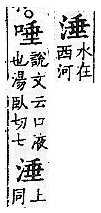 涶水在西河
唾說文云口液也湯臥切七涶上同